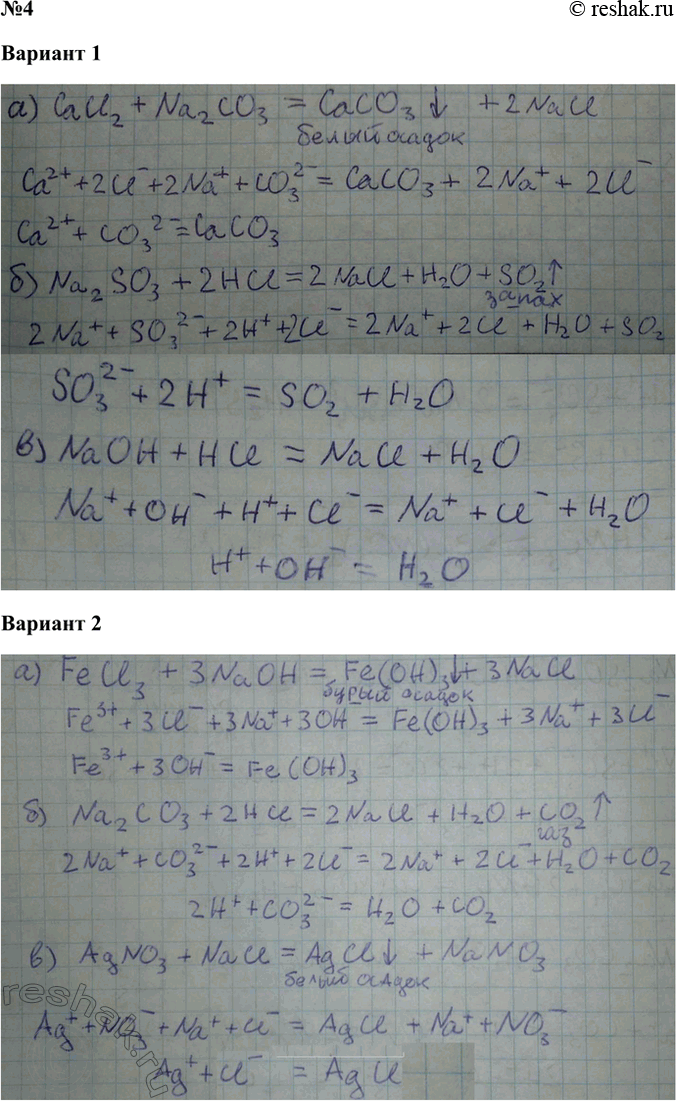 №4
© reshak.ru
Вариант 1
а) CaCl₂ + Na₂CO₃ = CaCO₃↓ + 2NaCl
белый осадок
Ca²⁺ + 2Cl⁻ + 2Na⁺ + CO₃²⁻ = CaCO₃ + 2Na⁺ + 2Cl⁻
Ca²⁺ + CO₃²⁻ = CaCO₃
б) Na₂SO₃ + 2HCl = 2NaCl + H₂O + SO₂↑
запах
2Na⁺ + SO₃²⁻ + 2H⁺ + 2Cl⁻ = 2Na⁺ + 2Cl⁻ + H₂O + SO₂
SO₃²⁻ + 2H⁺ = SO₂ + H₂O
в) NaOH + HCl = NaCl + H₂O
Na⁺ + OH⁻ + H⁺ + Cl⁻ = Na⁺ + Cl⁻ + H₂O
H⁺ + OH⁻ = H₂O
Вариант 2
а) FeCl₃ + 3NaOH = Fe(OH)₃↓ + 3NaCl
бурый осадок
Fe³⁺ + 3Cl⁻ + 3Na⁺ + 3OH⁻ = Fe(OH)₃ + 3Na⁺ + 3Cl⁻
Fe³⁺ + 3OH⁻ = Fe(OH)₃
б) Na₂CO₃ + 2HCl = 2NaCl + H₂O + CO₂↑
газ
2Na⁺ + CO₃²⁻ + 2H⁺ + 2Cl⁻ = 2Na⁺ + 2Cl⁻ + H₂O + CO₂
2H⁺ + CO₃²⁻ = H₂O + CO₂
в) AgNO₃ + NaCl = AgCl↓ + NaNO₃
белый осадок
Ag⁺ + NO₃⁻ + Na⁺ + Cl⁻ = AgCl + Na⁺ + NO₃⁻
Ag⁺ + Cl⁻ = AgCl
reshak.ru